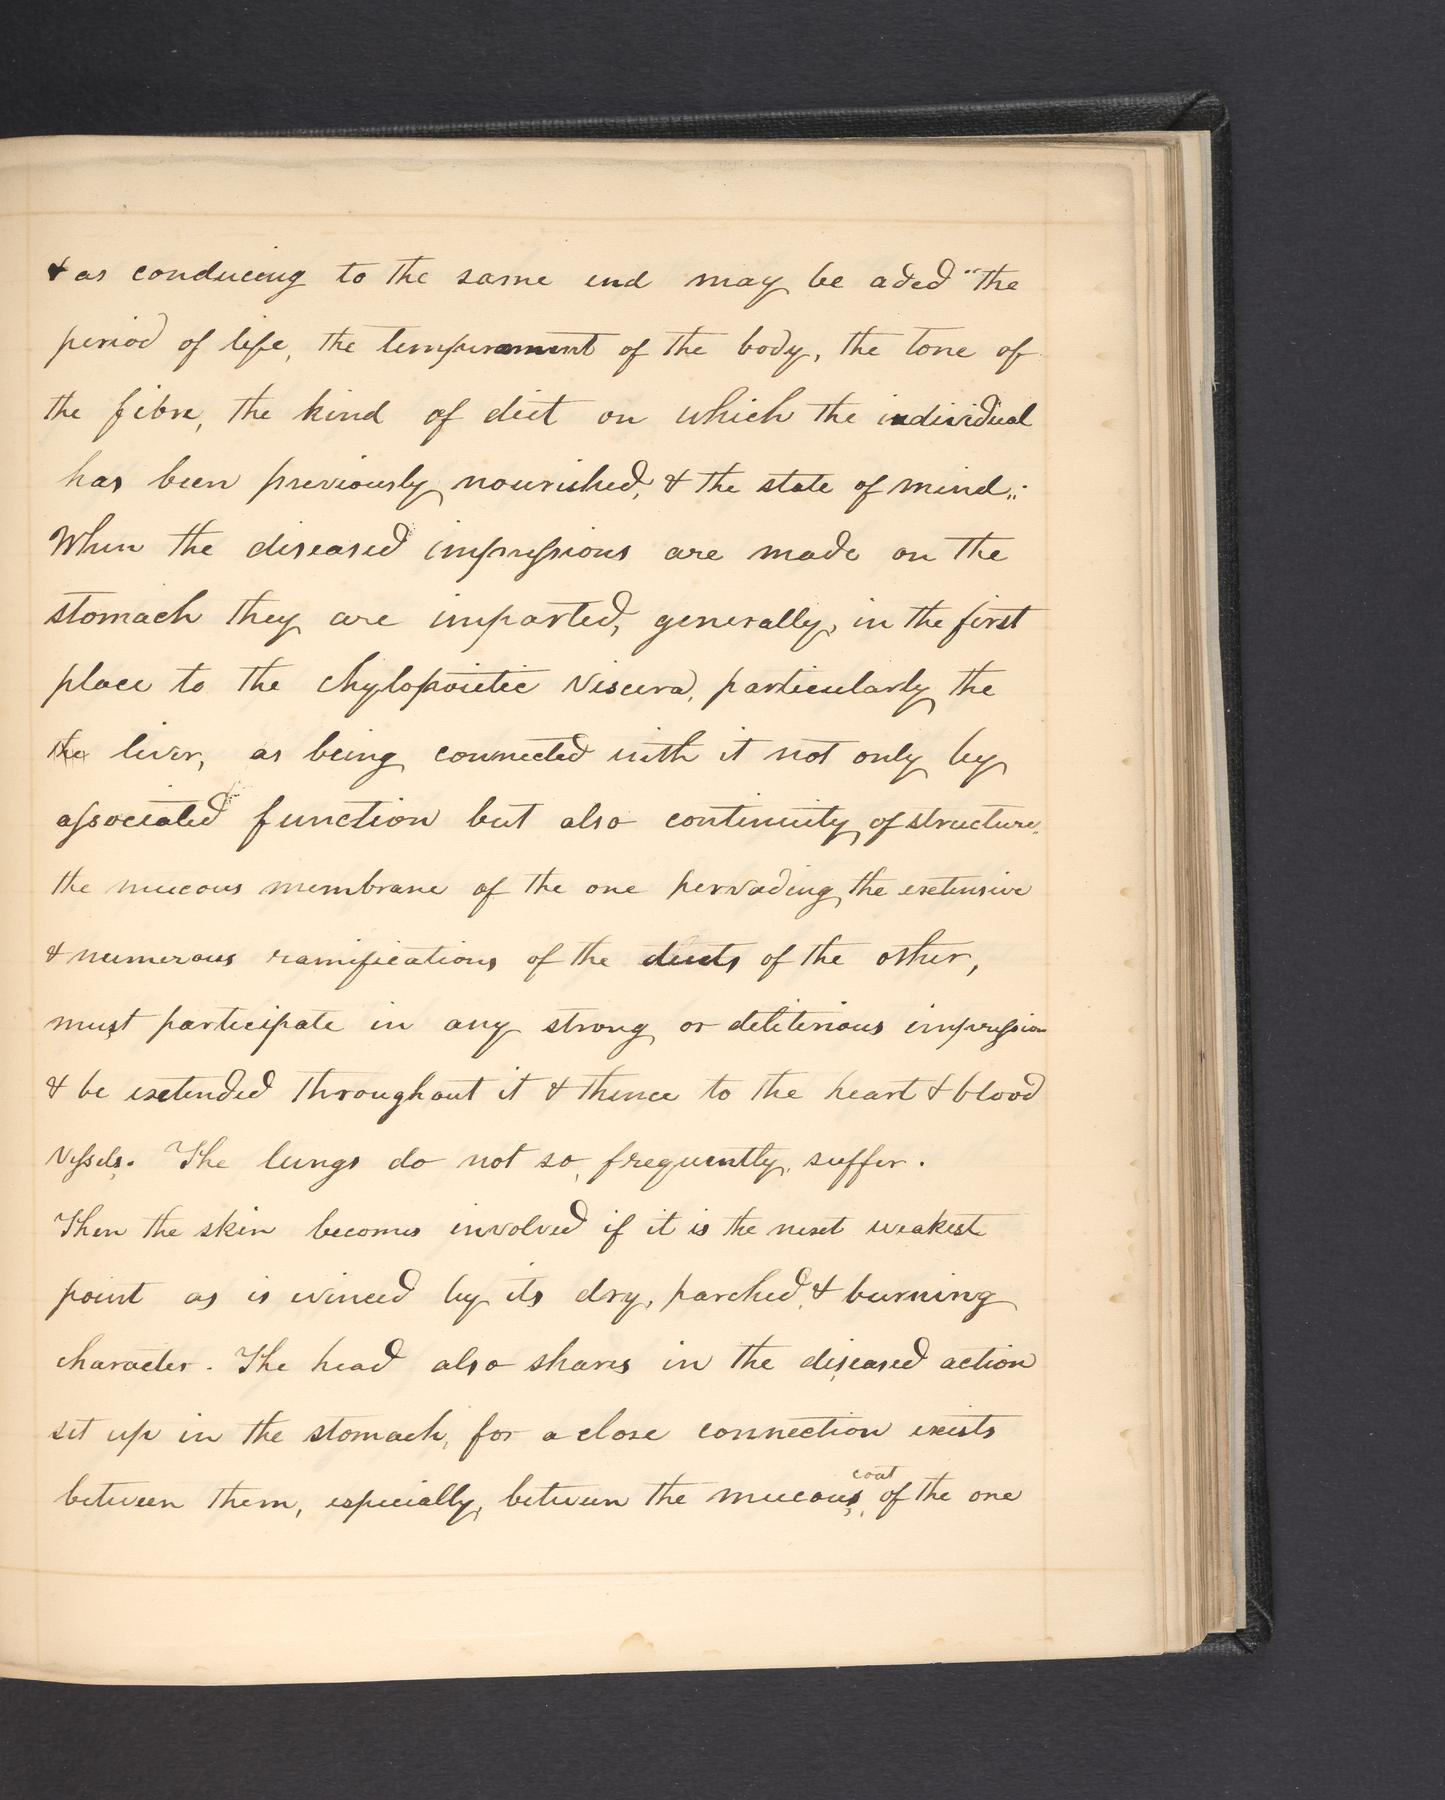 & as conducing to the same end may be aded "the
period of life, the temperament of the body, the tone of
the fibre, the kind of diet on which the individual
has been previously nourished, & the state of mind."
When the diseased impressions are made on the
stomach they are imparted, generally, in the first
place to the chylopoietic viscera, particularly the
the liver, as being connected with it not only by
associated function but also continuity of structure.
the mucous membrane of the one pervading the extensive
& numerous ramifications of the ducts of the other,
must participate in any strong or deliterious impression
& be extended throughout it & thence to the heart & blood
vessels. The lungs do not so frequently suffer.
Then the skin becomes involved if it is the next weakest
point as is evinced by its dry, parched, & burning
character. The head also shares in the diseased action
set up in the stomach, for a close connection exists
between them, especially, between the mucous coat of the one